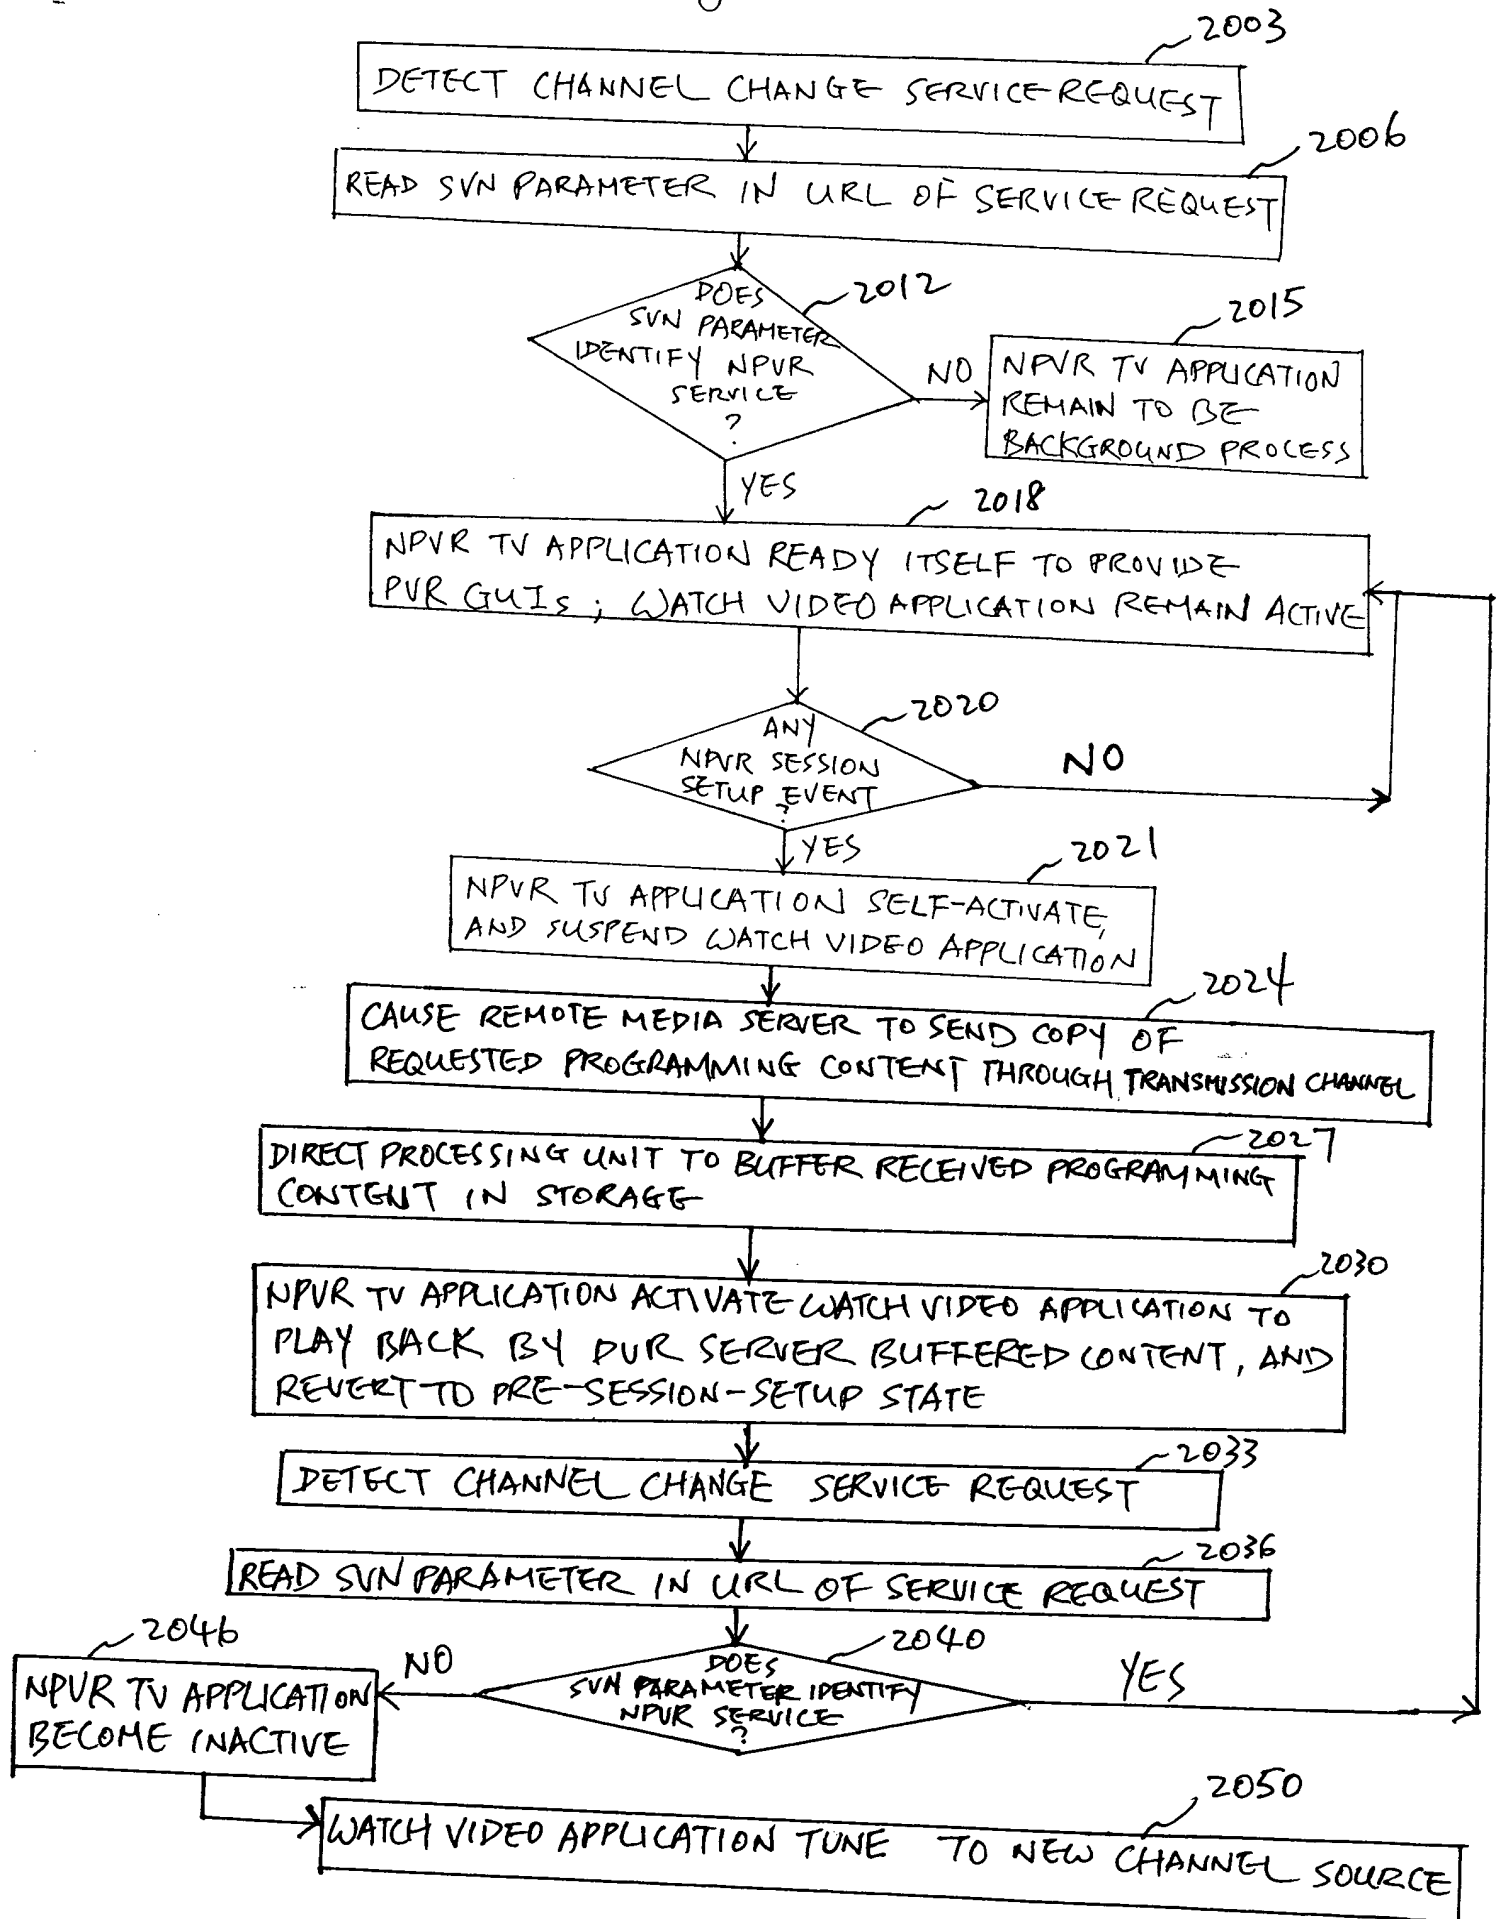 2003
DETECT CHANNEL CHANGE SERVICE REQUEST
2006
READ SVN PARAMETER IN URL OF SERVICE REQUEST
2012
DOES
SVN PARAMETER
IDENTIFY NPVR
SERVICE
?
NO
2015
NPVR TV APPLICATION
REMAIN TO BE
BACKGROUND PROCESS
YES
2018
NPVR TV APPLICATION READY ITSELF TO PROVIDE
PVR GUIs; WATCH VIDEO APPLICATION REMAIN ACTIVE
2020
ANY
NPVR SESSION
SETUP EVENT
?
NO
YES
2021
NPVR TV APPLICATION SELF-ACTIVATE,
AND SUSPEND WATCH VIDEO APPLICATION
2024
CAUSE REMOTE MEDIA SERVER TO SEND COPY OF
REQUESTED PROGRAMMING CONTENT THROUGH TRANSMISSION CHANNEL
2027
DIRECT PROCESSING UNIT TO BUFFER RECEIVED PROGRAMMING
CONTENT IN STORAGE
2030
NPVR TV APPLICATION ACTIVATE WATCH VIDEO APPLICATION TO
PLAY BACK BY DVR SERVER BUFFERED CONTENT, AND
REVERT TO PRE-SESSION-SETUP STATE
2033
DETECT CHANNEL CHANGE SERVICE REQUEST
2036
READ SVN PARAMETER IN URL OF SERVICE REQUEST
2040
DOES
SVN PARAMETER IDENTIFY
NPVR SERVICE
?
NO
YES
2046
NPVR TV APPLICATION
BECOME INACTIVE
2050
WATCH VIDEO APPLICATION TUNE TO NEW CHANNEL SOURCE